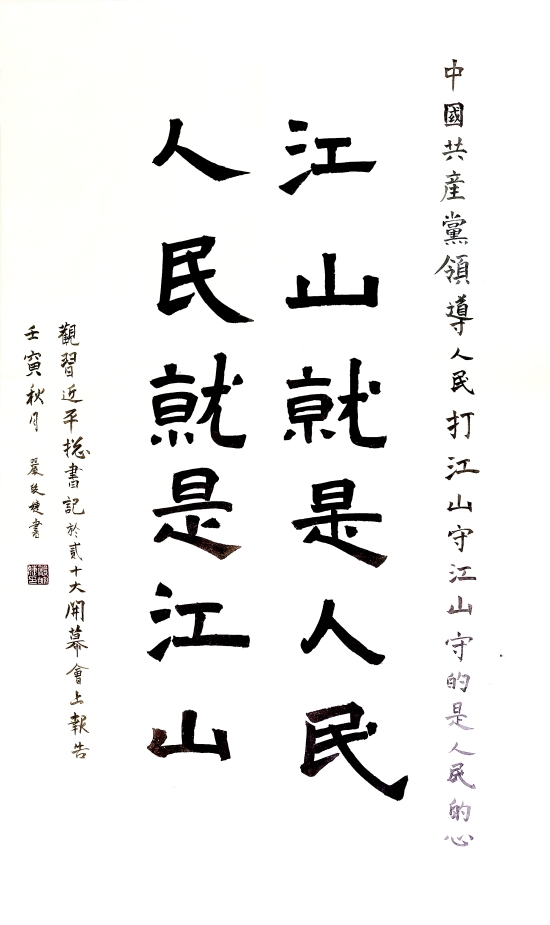 中國共産黨領導人民打江山守江山守的是人民的心
江山就是人民
人民就是江山
觀習近平總書記於貳十大開幕會上報告
壬寅秋月